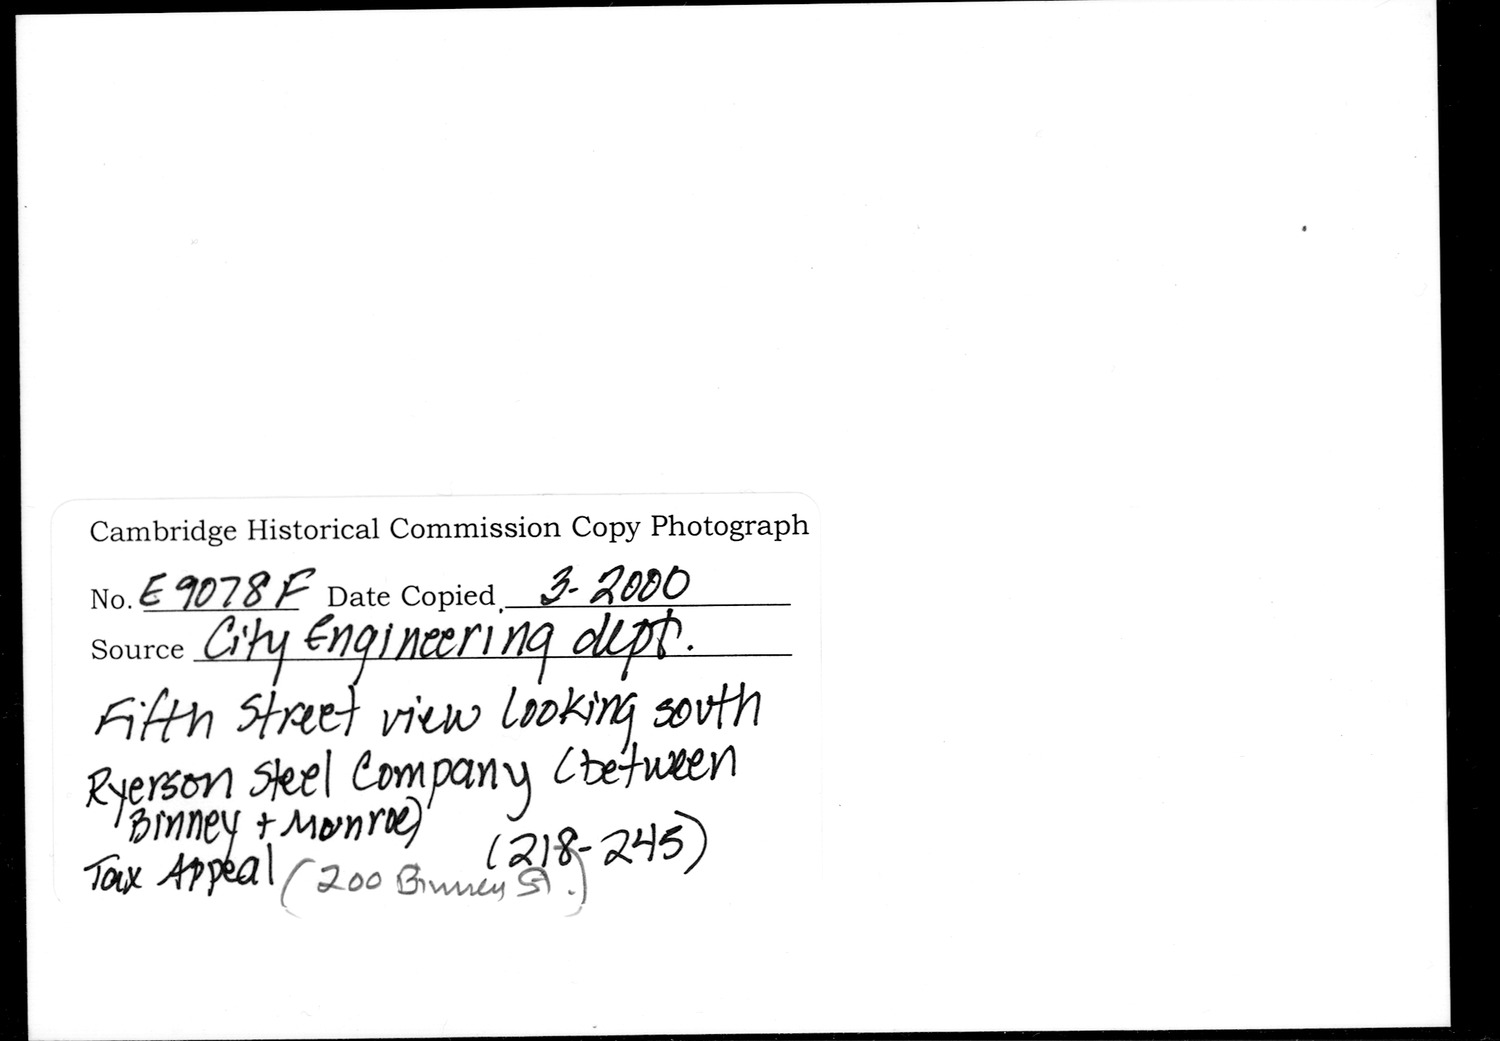 Cambridge Historical Commission Copy Photograph
No. E9078F Date Copied 3-2000
Source City Engineering dept.
Fifth Street view looking south
Ryerson Steel Company (between
Binney + Monroe)
(218-245)
Tax Appeal (200 Binney St.)